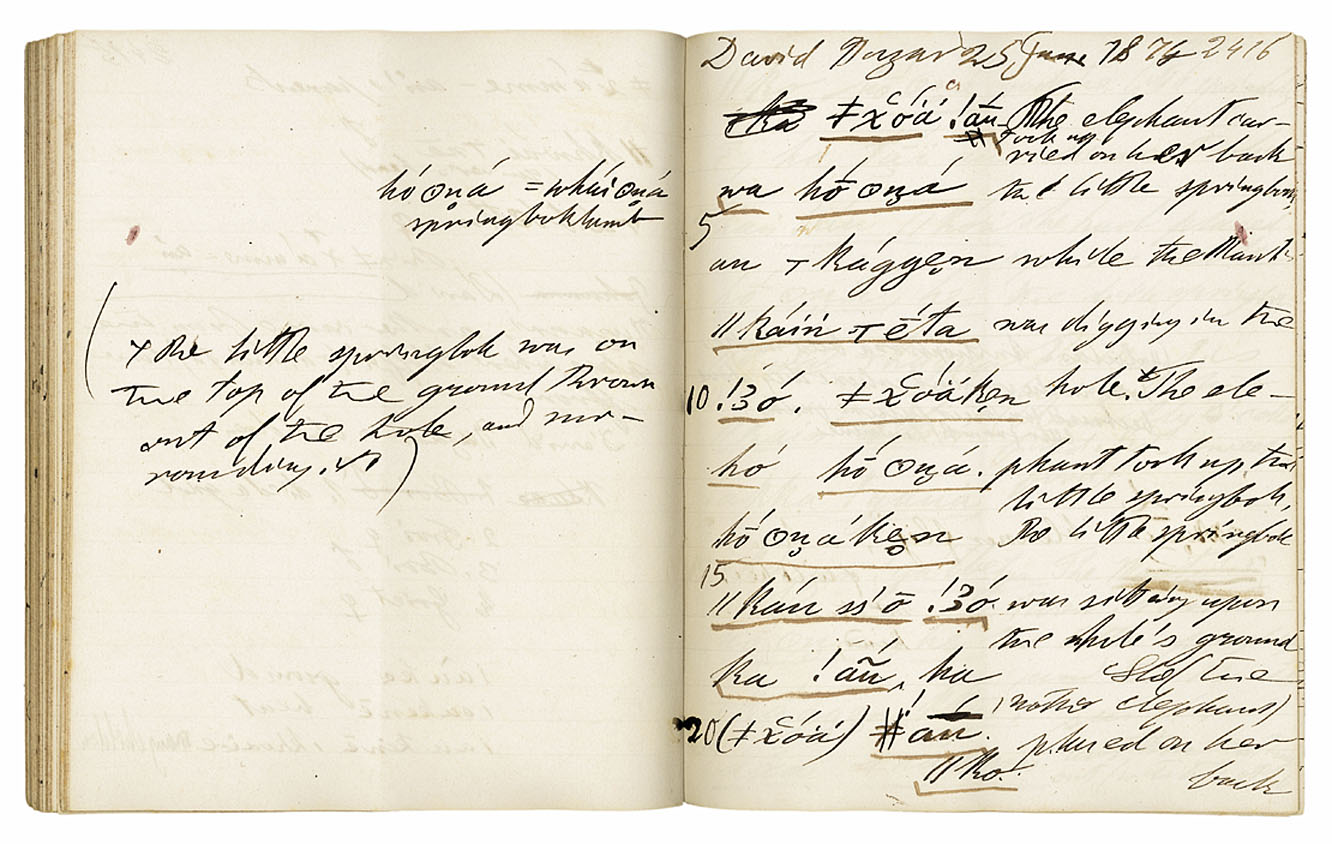 hóʘná = whái ʘná
springboklamb
( + The little springbok was on
the top of the ground thrown
out of the hole, and sur-
rounding it)
David 25 June 1874 2416
ǂχóá !ãu The elephant car-
took up
ried on her back
wa hóʘná the little springbok,
5
au Kággen while the Mantis
ǁkáiń éta was digging in the
10 !3ó. ǂχóáken hole. + The ele-
hó hóʘná. phant took up the
little springbok,
hóʘnáken The little springbok
15
ǁkáń ss'ō !3ó. was sitting upon
the hole's ground
ka !ãũ, ha the
20 (ǂχóá) mother elephant)
placed on her
ǁko. back